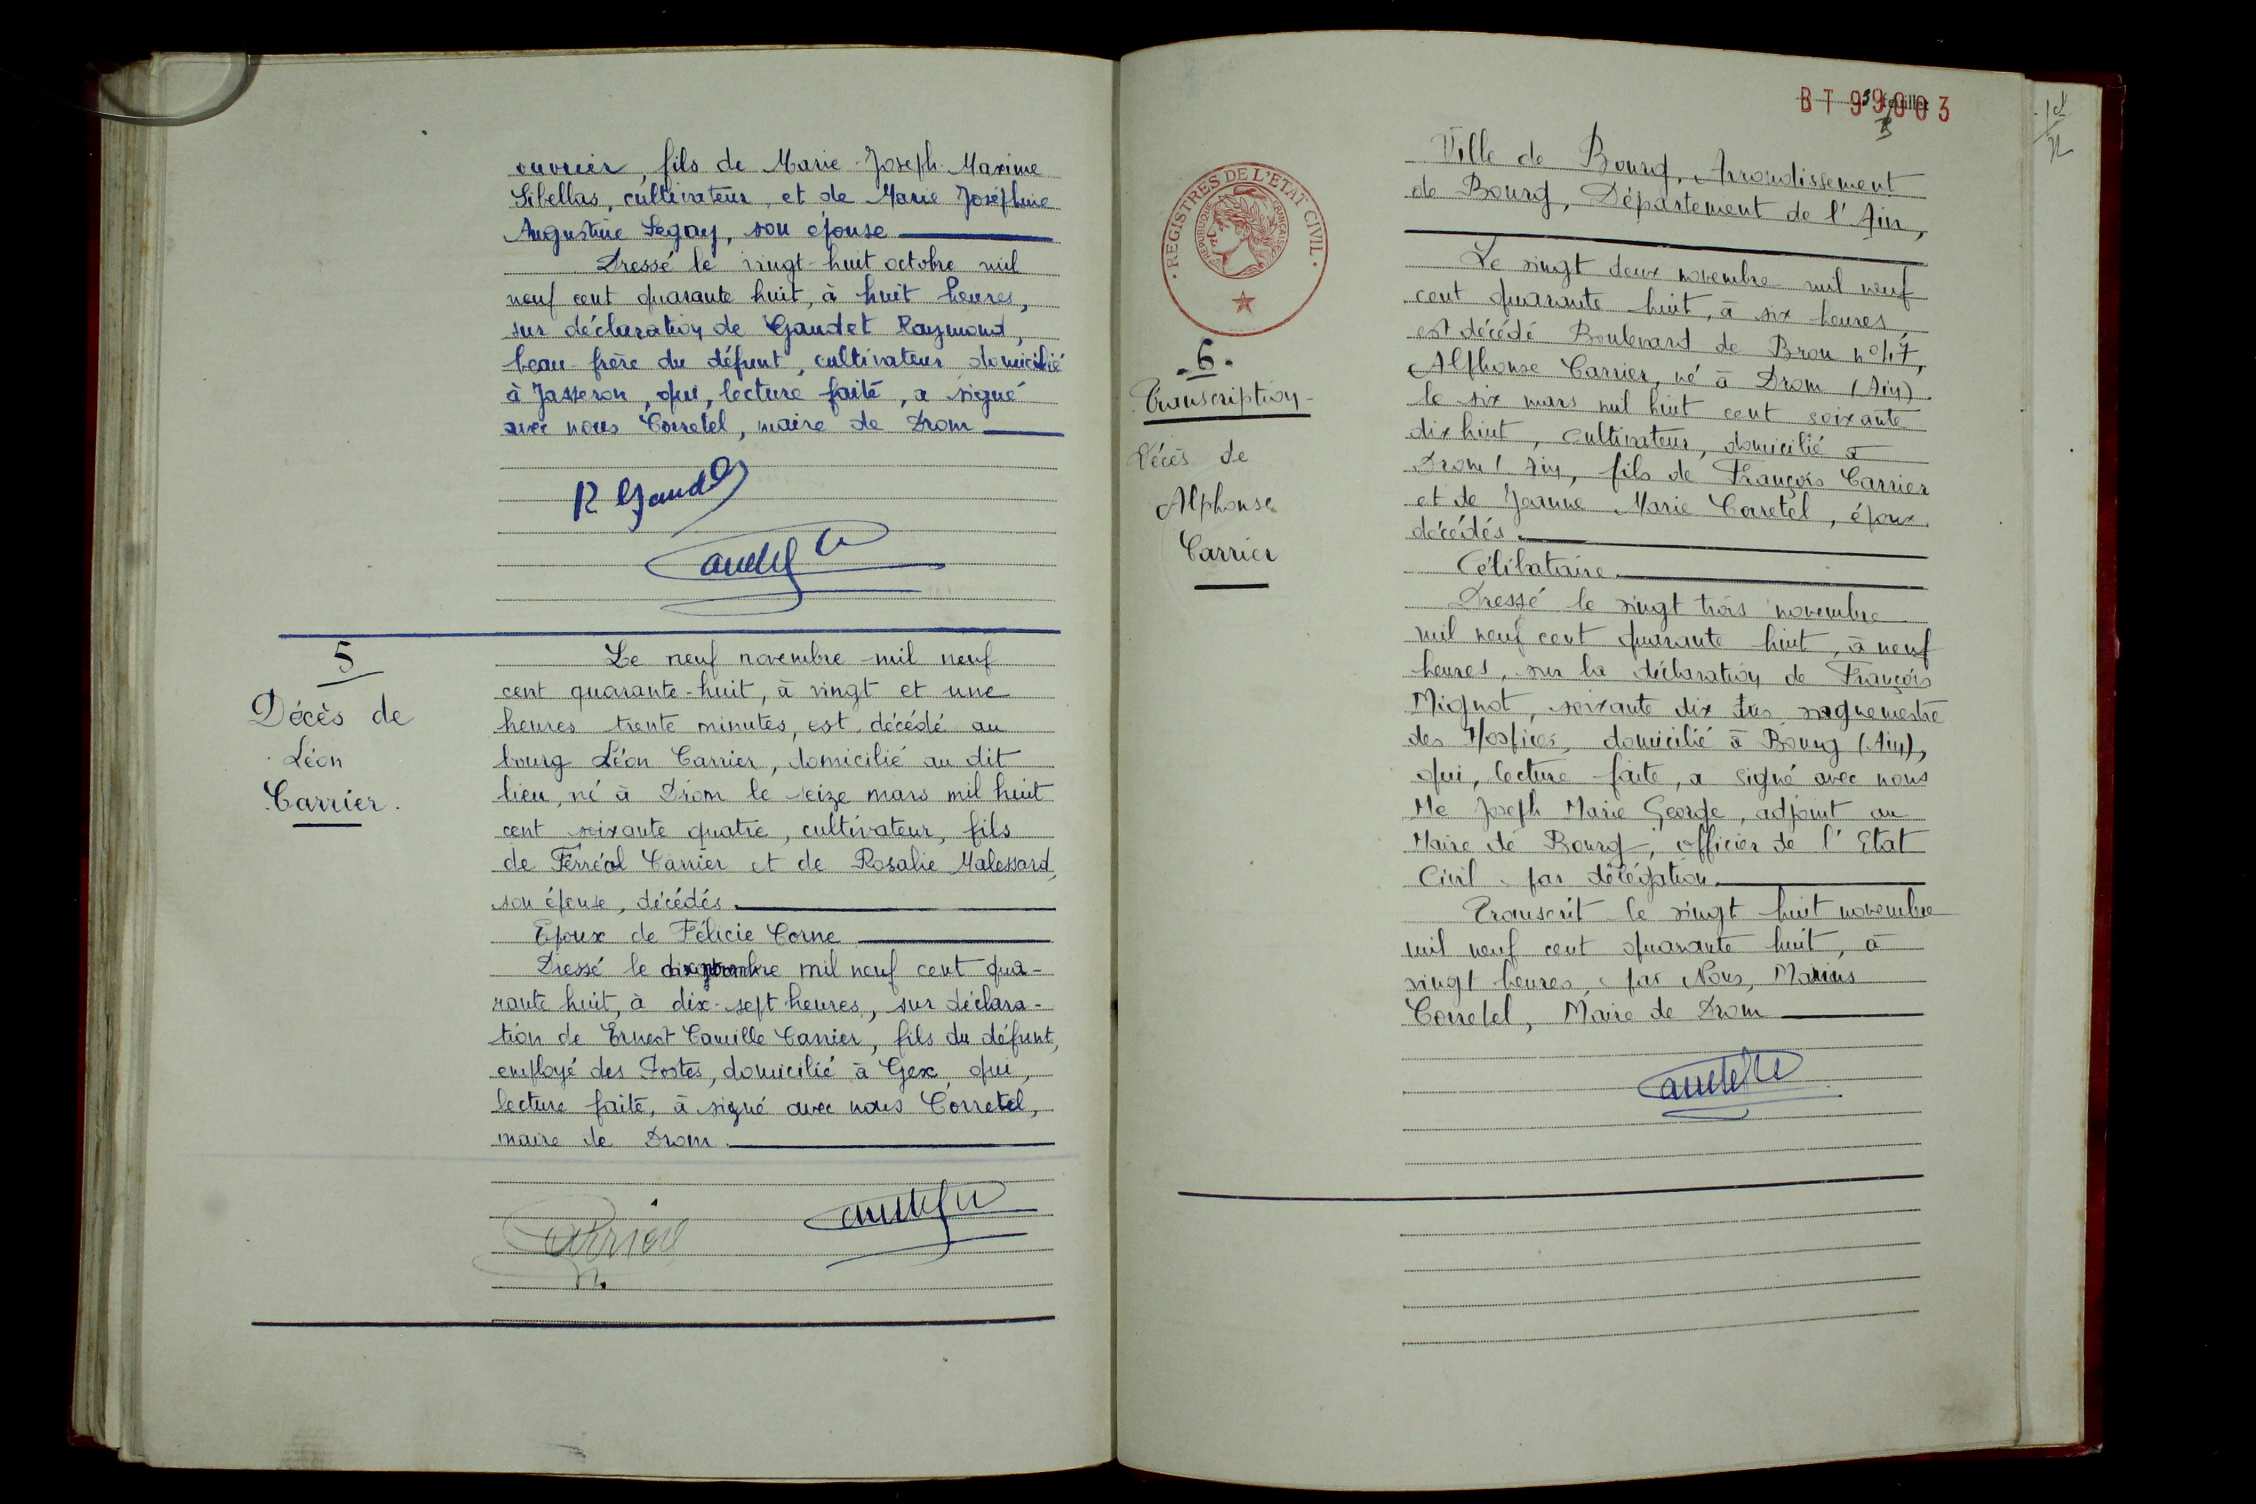 ouvrier, fils de Marie-Joseph-Maxime
Sibellas, cultivateur, et de Marie Joséphine
Augustine Legay, son épouse
Dressé le vingt-huit octobre mil
neuf cent quarante huit, à huit heures,
sur déclaration de Gaudet Raymond,
beau-frère du défunt, cultivateur domicilié
à Jasseron, qui, lecture faite, a signé
avec nous Corretel, maire de Drom
R Gaudet
5
Décès de
Léon
Carrier.
Le neuf novembre mil neuf
cent quarante-huit, à vingt et une
heures trente minutes, est décédé au
bourg Léon Carrier, domicilié au dit
lieu, né à Drom le seize mars mil huit
cent soixante quatre, cultivateur, fils
de Ferréol Carrier et de Rosalie Malessard,
son épouse, décédés.
Epoux de Félicie Corne
Dressé le dix novembre mil neuf cent qua-
rante huit, à dix-sept heures, sur déclara-
tion de Ernest Camille Carrier, fils du défunt,
employé des Postes, domicilié à Gex, qui,
lecture faite, à signé avec nous Corretel,
maire de Drom.
Carrier
BT 99003
feuillet
REGISTRES DE L'ETAT CIVIL
REPUBLIQUE FRANÇAISE
6.
Transcription
Décès de
Alphonse
Carrier
Ville de Bourg, Arrondissement
de Bourg, Département de l'Ain,
Le vingt deux novembre mil neuf
cent quarante huit, à six heures,
est décédé Boulevard de Brou n° 47,
Alphonse Carrier, né à Drom (Ain)
le six mars mil huit cent soixante
dix huit, cultivateur, domicilié à
Drom (Ain, fils de François Carrier
et de Jeanne Marie Carretel, époux
décédés.
Célibataire.
Dressé le vingt trois novembre
mil neuf cent quarante huit, à neuf
heures, sur la déclaration de François
Mignot, soixante dix ans vaguemestre
des Hospices, domicilié à Bourg (Ain),
qui, lecture faite, a signé avec nous
Me Joseph Marie George, adjoint au
Maire de Bourg, officier de l'Etat
Civil par délégation.
Transcrit le vingt huit novembre
mil neuf cent quarante huit, à
vingt heures, par Nous, Marius
Corretel, Maire de Drom